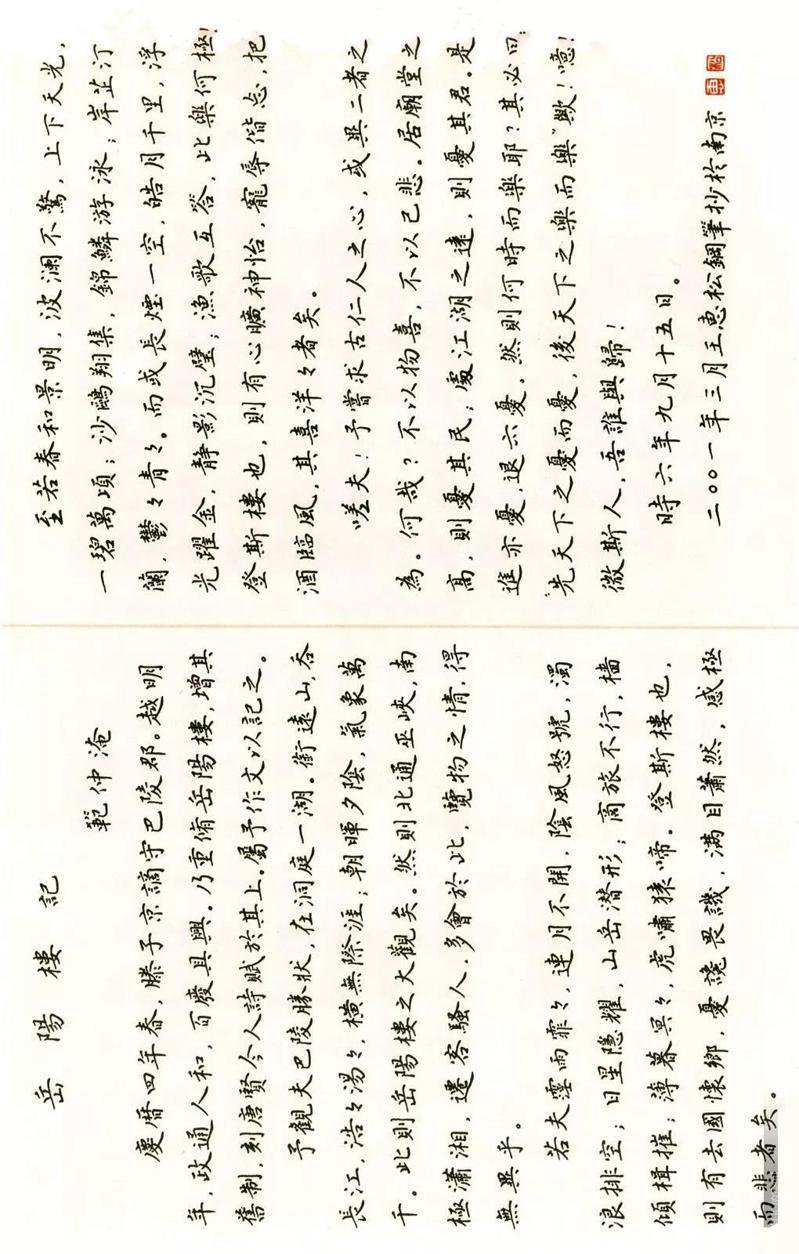 岳陽樓記
範仲淹
慶曆四年春，滕子京謫守巴陵郡。越明
年，政通人和，百廢具興。乃重脩岳陽樓，增其
舊制，刻唐賢今人詩賦於其上。屬予作文以記之。
予觀夫巴陵勝狀，在洞庭一湖。銜遠山，吞
長江，浩々湯々，橫無際涯；朝暉夕陰，氣象萬
千。此則岳陽樓之大觀矣。然則北通巫峽，南
極瀟湘，遷客騷人，多會於此，覽物之情，得
無異乎。
若夫霪雨霏々，連月不開，陰風怒號，濁
浪排空；日星隱耀，山岳潜形；商旅不行，檣
傾楫摧；薄暮冥々，虎嘯猿啼。登斯樓也，
則有去國懷鄉，憂讒畏譏，满目蕭然，感極
而悲者矣。
至若春和景明，波澜不驚，上下天光，
一碧萬項；沙鷗翔集，錦鱗游泳；岸芷汀
蘭，鬱々青々。而或長煙一空，皓月千里，浮
光躍金，静影沉璧；漁歌互答，此樂何極！
登斯樓也，則有心曠神怡，寵辱偕忘，把
酒臨風，其喜洋々者矣。
嗟夫！予嘗求古仁人之心，或異二者之
為。何哉？不以物喜，不以己悲。居廟堂之
高，則憂其民；處江湖之遠，則憂其君。是
進亦憂，退亦憂，然則何時而樂耶？其必曰：
“先天下之憂而憂，後天下之樂而樂”歟！噫！
微斯人，吾誰與歸！
時六年九月十五日。
二〇〇一年三月王惠松鋼筆抄於南京